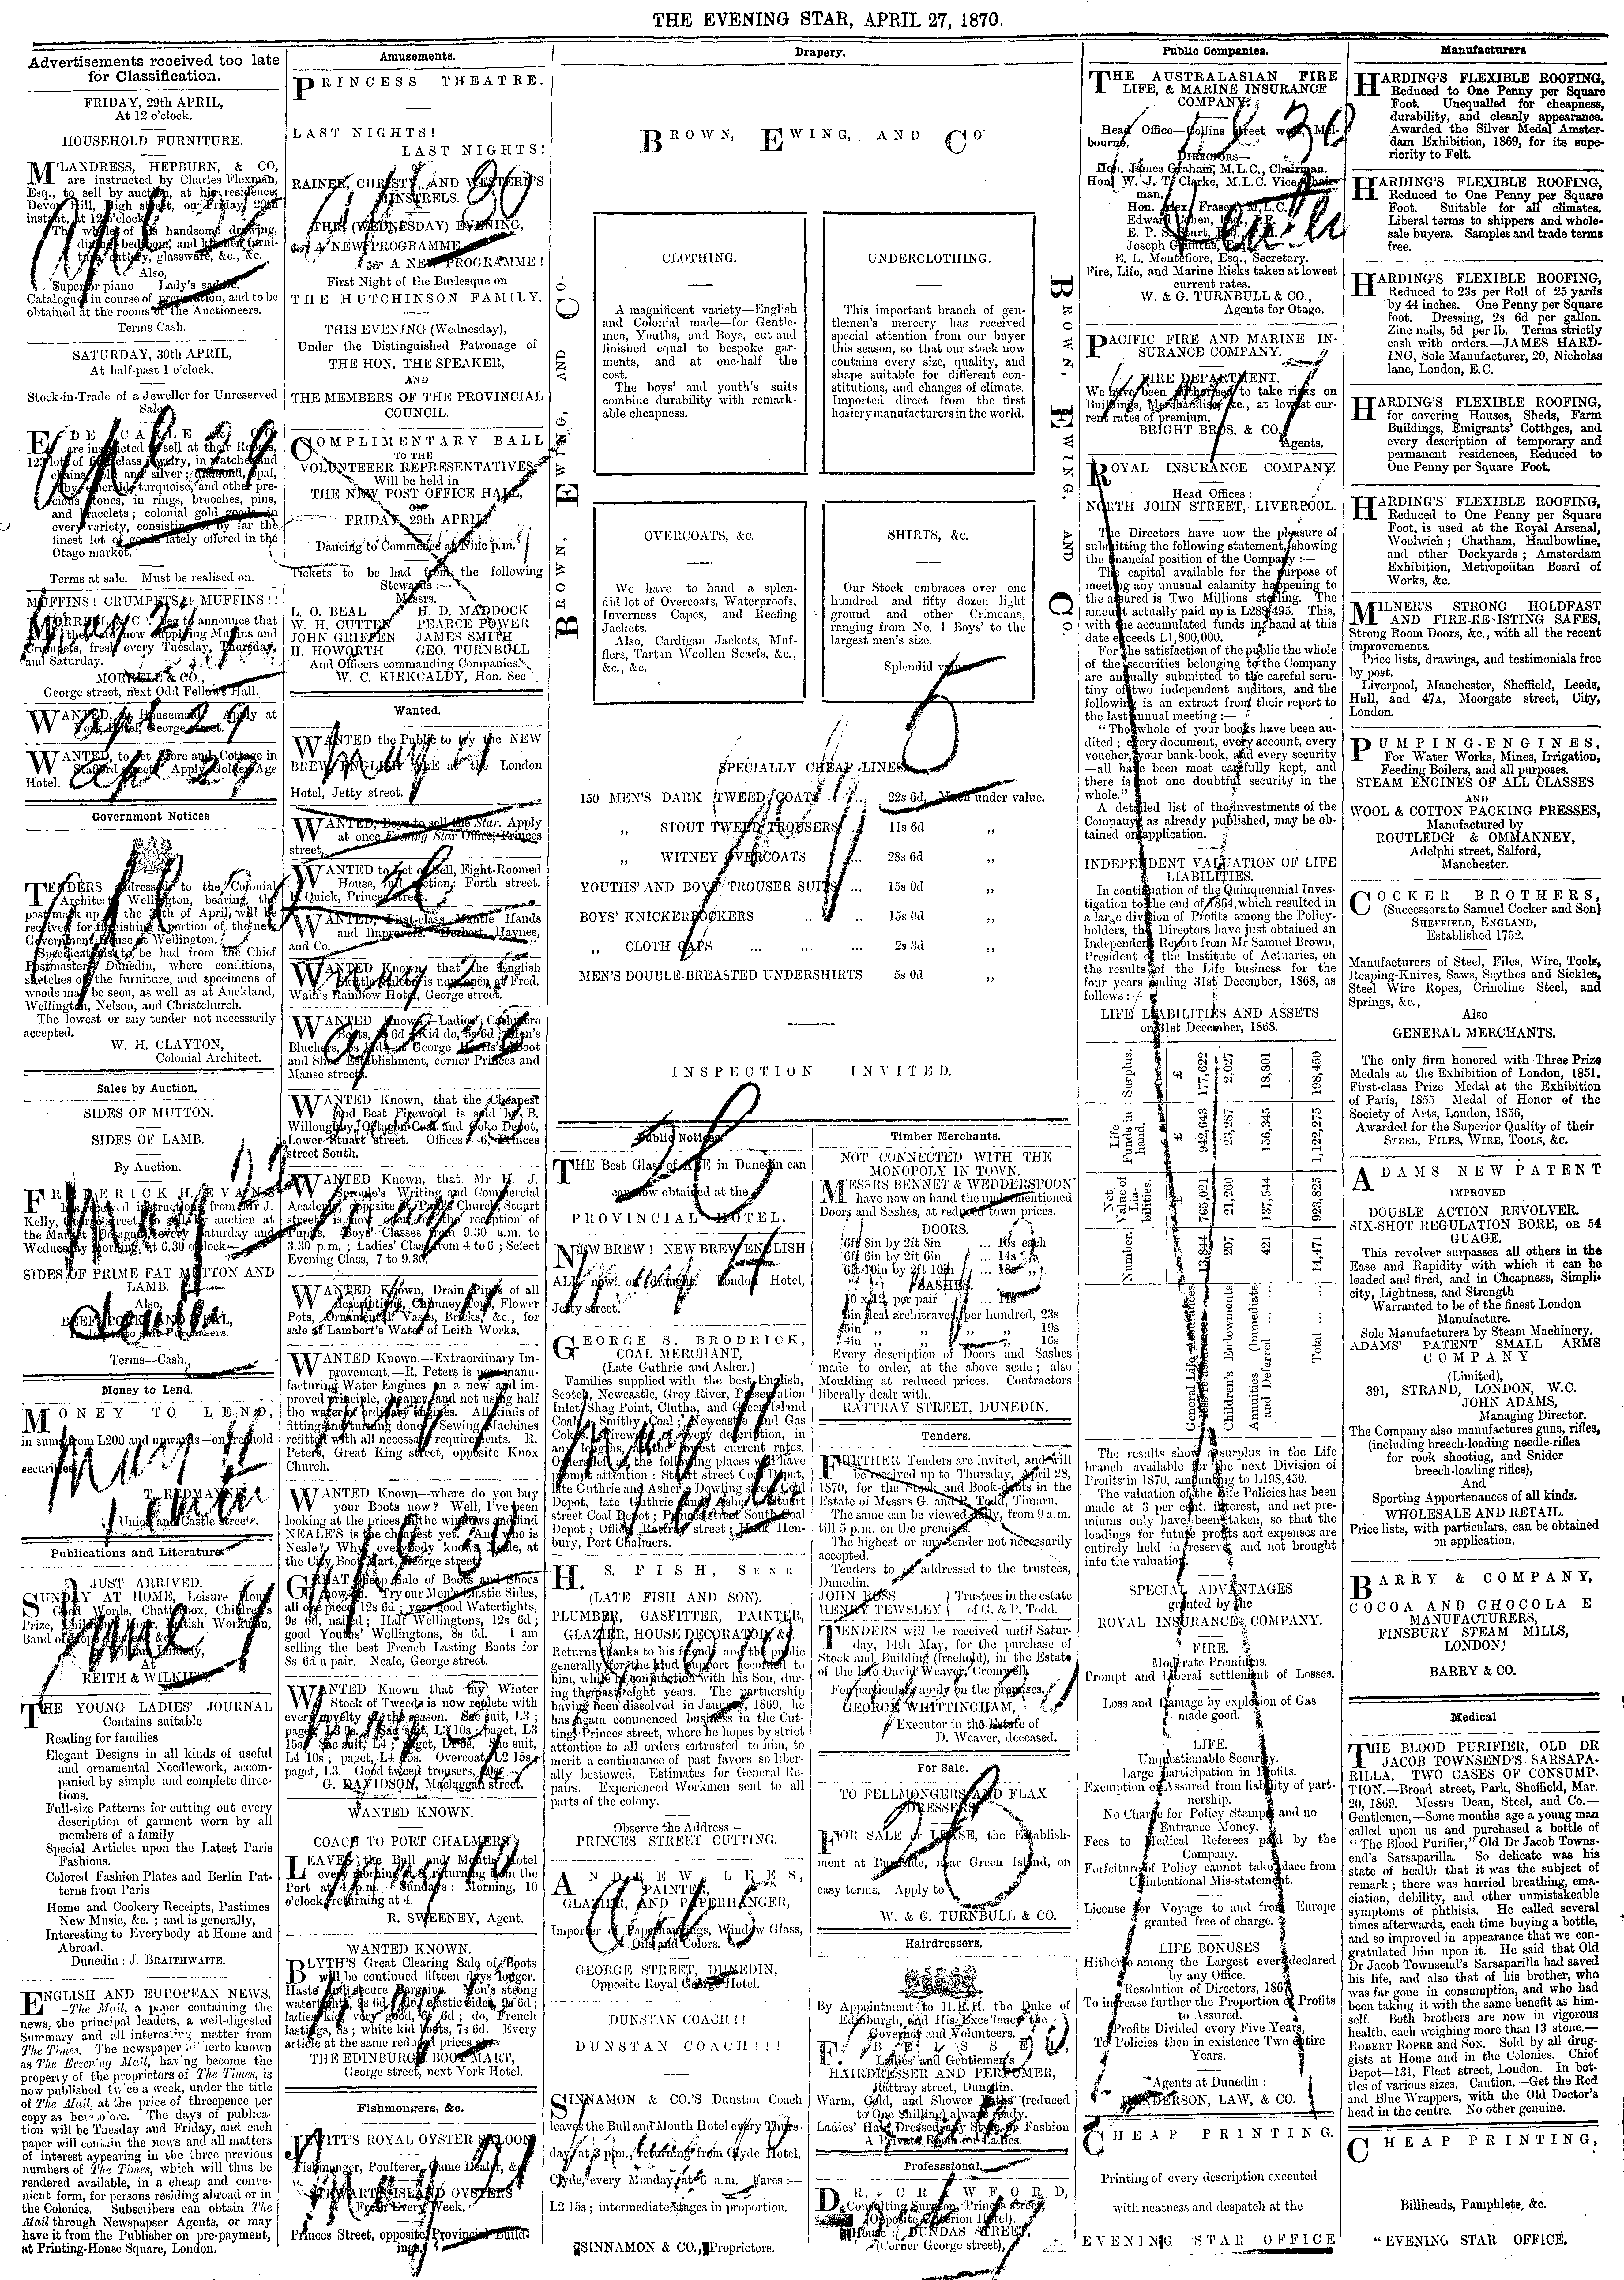 THE EVENING STAR, APRIL 27, 1870.
Advertisements received too late
for Classification.
FRIDAY, 29th APRIL,
At 12 o'clock.
HOUSEHOLD FURNITURE.
M'LANDRESS, HEPBURN, & CO,
are instructed by Charles Flexman,
Esq., to sell by auction, at his residence,
Devon Hill, High street, on Friday, 29th
instant, at 12 o'clock
The whole of his handsome drawing,
dining, bedroom, and kitchen furni-
ture, cutlery, glassware, &c., &c.
Also,
Superior piano Lady's saddle.
Catalogues in course of preparation, and to be
obtained at the rooms of the Auctioneers.
Terms Cash.
SATURDAY, 30th APRIL,
At half-past 1 o'clock.
Stock-in-Trade of a Jeweller for Unreserved
Sale.
E. DE CARLE & CO
are instructed to sell at their Rooms,
123 lots of first-class jewelry, in watches and
chains, gold and silver; diamond, opal,
ruby, emerald, turquoise, and other pre-
cious stones, in rings, brooches, pins,
and bracelets; colonial gold goods, in
every variety, consisting of by far the
finest lot of goods lately offered in the
Otago market.
Terms at sale. Must be realised on.
MUFFINS! CRUMPETS!! MUFFINS!!
MORRELL & CO. beg to announce that
they are now supplying Muffins and
Crumpets, fresh every Tuesday, Thursday,
and Saturday.
MORRELL & CO.,
George street, next Odd Fellows Hall.
WANTED, a Housemaid. Apply at
York Hotel, George street.
WANTED, to Let Store and Cottage in
Stafford street. Apply Golden Age
Hotel.
Government Notices
TENDERS addressed to the Colonial
Architect, Wellington, bearing the
post mark up to the 30th of April, will be
received for furnishing a portion of the new
Government House at Wellington.
Specifications to be had from the Chief
Postmaster, Dunedin, where conditions,
sketches of the furniture, and specimens of
woods may be seen, as well as at Auckland,
Wellington, Nelson, and Christchurch.
The lowest or any tender not necessarily
accepted.
W. H. CLAYTON,
Colonial Architect.
Sales by Auction.
SIDES OF MUTTON.
SIDES OF LAMB.
By Auction.
FREDERICK H. EVANS
has received instructions from Mr J.
Kelly, George street, to sell by auction at
the Market, Octagon, every Saturday and
Wednesday morning, at 6.30 o'clock—
SIDES OF PRIME FAT MUTTON AND
LAMB.
Also,
BEEF, PORK, AND VEAL,
In lots to suit Purchasers.
Terms—Cash.
Money to Lend.
MONEY TO LEND,
in sums from L200 and upwards—on freehold
securities.
T. REDMAYNE,
Union and Castle streets.
Publications and Literature
JUST ARRIVED.
SUNDAY AT HOME, Leisure Hour,
Good Words, Chatterbox, Children's
Prize, Children's Hour, British Workman,
Band of Hope Review, &c.
At
REITH & WILKIE
THE YOUNG LADIES' JOURNAL
Contains suitable
Reading for families
Elegant Designs in all kinds of useful
and ornamental Needlework, accom-
panied by simple and complete direc-
tions.
Full-size Patterns for cutting out every
description of garment worn by all
members of a family
Special Articles upon the Latest Paris
Fashions.
Colored Fashion Plates and Berlin Pat-
terns from Paris
Home and Cookery Receipts, Pastimes
New Music, &c.; and is generally,
Interesting to Everybody at Home and
Abroad.
Dunedin: J. BRAITHWAITE.
ENGLISH AND EUROPEAN NEWS.
—The Mail, a paper containing the
news, the principal leaders, a well-digested
Summary and all interesting matter from
The Times. The newspaper hitherto known
as The Evening Mail, having become the
property of the proprietors of The Times, is
now published twice a week, under the title
of The Mail, at the price of threepence per
copy as heretofore. The days of publica-
tion will be Tuesday and Friday, and each
paper will contain the news and all matters
of interest appearing in the three previous
numbers of The Times, which will thus be
rendered available, in a cheap and conve-
nient form, for persons residing abroad or in
the Colonies. Subscribers can obtain The
Mail through Newspapser Agents, or may
have it from the Publisher on pre-payment,
at Printing-House Square, London.
Amusements.
PRINCESS THEATRE.
LAST NIGHTS!
LAST NIGHTS!
of
RAINER, CHRISTY, AND WESTERN'S
MINSTRELS.
THIS (WEDNESDAY) EVENING,
A NEW PROGRAMME
A NEW PROGRAMME!
First Night of the Burlesque on
THE HUTCHINSON FAMILY.
THIS EVENING (Wednesday),
Under the Distinguished Patronage of
THE HON. THE SPEAKER,
AND
THE MEMBERS OF THE PROVINCIAL
COUNCIL.
COMPLIMENTARY BALL
TO THE
VOLUNTEEER REPRESENTATIVES
Will be held in
THE NEW POST OFFICE HALL,
ON
FRIDAY 29th APRIL
Dancing to Commence at Nine p.m.
Tickets to be had from the following
Stewards:—
Messrs.
L. O. BEAL H. D. MADDOCK
W. H. CUTTEN PEARCE POWER
JOHN GRIFFEN JAMES SMITH
H. HOWORTH GEO. TURNBULL
And Officers commanding Companies.
W. C. KIRKCALDY, Hon. Sec.
Wanted.
WANTED the Public to try the NEW
BREW ENGLISH ALE at the London
Hotel, Jetty street.
WANTED, Boys to sell the Star. Apply
at once Evening Star Office, Princes
street.
WANTED to Let or Sell, Eight-Roomed
House, full section, Forth street.
Quick, Princes street.
WANTED, First-class Mantle Hands
and Improvers. Herbert, Haynes,
and Co.
WANTED Known that the English
Skittle Saloon is now open at Fred.
Wain's Rainbow Hotel, George street.
WANTED Known—Ladies' Cashmere
Boots, 6d; Kid do, 6s 6d; Men's
Bluchers, at George Boot
and Shoe Establishment, corner Princes and
Manse streets.
WANTED Known, that the Cheapest
and Best Firewood is sold by B.
Willoughby, Octagon Coal and Coke Depot,
Lower Stuart street. Offices—6, Princes
street South.
WANTED Known, that Mr H. J.
Sproule's Writing and Commercial
Academy, opposite St. Paul's Church, Stuart
street, is now open for the reception of
Pupils. Boys' Classes from 9.30 a.m. to
3.30 p.m.; Ladies' Class from 4 to 6; Select
Evening Class, 7 to 9.30.
WANTED Known, Drain Pipes of all
descriptions, Chimney Tops, Flower
Pots, Ornamental Vases, Bricks, &c., for
sale at Lambert's Water of Leith Works.
WANTED Known.—Extraordinary Im-
provement.—R. Peters is now manu-
facturing Water Engines on a new and im-
proved principle, cheaper, and not using half
the water of ordinary engines. All kinds of
fitting and turning done. Sewing Machines
refitted with all necessary requirements. R.
Peters, Great King street, opposite Knox
Church.
WANTED Known—where do you buy
your Boots now? Well, I've been
looking at the prices in the windows and find
NEALE'S is the cheapest yet. And who is
Neale? Why everybody knows Neale, at
the City Boot Mart, George street.
GREAT Cheap Sale of Boots and Shoes
now on. Try our Men's Elastic Sides,
all one piece 12s 6d; very good Watertights,
9s 6d, nailed; Half Wellingtons, 12s 6d;
good Youths' Wellingtons, 8s 6d. I am
selling the best French Lasting Boots for
8s 6d a pair. Neale, George street.
WANTED Known that my Winter
Stock of Tweeds is now replete with
every novelty of the season. Sac suit, L3;
paget, L3 5s. Sac suit, L3 10s; paget, L3
15s. Sac suit, L4; paget, L4 5s. Sac suit,
L4 10s; paget, L4 15s. Overcoat, L2 15s;
paget, L3. Good tweed trousers, 20s.
G. DAVIDSON, Maclaggan street.
WANTED KNOWN.
COACH TO PORT CHALMERS
LEAVES the Bull and Mouth Hotel
every morning at , returning from the
Port at 4 p.m. Sundays: Morning, 10
o'clock, returning at 4.
R. SWEENEY, Agent.
WANTED KNOWN.
BLYTH'S Great Clearing Sale of Boots
will be continued fifteen days longer.
Haste and secure Bargains. Men's strong
watertights, 9s 6d; do, elastic sides, 9s 6d;
ladies' kid, very good, 6s 6d; do, French
lastings, 8s; white kid boots, 7s 6d. Every
article at the same reduced prices
THE EDINBURGH BOOT MART,
George street, next York Hotel.
Fishmongers, &c.
JEWITT'S ROYAL OYSTER SALOON
Fishmonger, Poulterer, Game Dealer, &c.
STEWART'S ISLAND OYSTERS
Fresh Every Week.
Princes Street, opposite Provincial Build-
ings.
Drapery.
BROWN, EWING, AND CO
BROWN, EWING, AND CO.
BROWN, EWING, AND CO.
CLOTHING.
A magnificent variety—English
and Colonial made—for Gentle-
men, Youths, and Boys, cut and
finished equal to bespoke gar-
ments, and at one-half the
cost.
The boys' and youth's suits
combine durability with remark-
able cheapness.
UNDERCLOTHING.
This important branch of gen-
tlemen's mercery has received
special attention from our buyer
this season, so that our stock now
contains every size, quality, and
shape suitable for different con-
stitutions, and changes of climate.
Imported direct from the first
hosiery manufacturers in the world.
OVERCOATS, &c.
We have to hand a splen-
did lot of Overcoats, Waterproofs,
Inverness Capes, and Reefing
Jackets.
Also, Cardigan Jackets, Muf-
flers, Tartan Woollen Scarfs, &c.,
&c., &c.
SHIRTS, &c.
Our Stock embraces over one
hundred and fifty dozen light
ground and other Crimeans,
ranging from No. 1 Boys' to the
largest men's size.
Splendid value
SPECIALLY CHEAP LINES.
150 MEN'S DARK TWEED COATS 22s 6d. Much under value.
„ STOUT TWEED TROUSERS 11s 6d „
„ WITNEY OVERCOATS ... 28s 6d „
YOUTHS' AND BOYS' TROUSER SUITS ... 15s 0d „
BOYS' KNICKERBOCKERS ... 15s 0d „
„ CLOTH CAPS ... ... ... 2s 3d „
MEN'S DOUBLE-BREASTED UNDERSHIRTS 5s 0d „
INSPECTION INVITED.
Public Notices
THE Best Glass of ALE in Dunedin can
be now obtained at the
PROVINCIAL HOTEL.
NEW BREW! NEW BREW ENGLISH
ALE, now on draught. London Hotel,
Jetty street.
GEORGE S. BRODRICK,
COAL MERCHANT,
(Late Guthrie and Asher.)
Families supplied with the best English,
Scotch, Newcastle, Grey River, Preservation
Inlet, Shag Point, Clutha, and Green Island
Coals; Smithy Coal; Newcastle and Gas
Coke. Firewood of every description, in
any lengths, at the lowest current rates.
Orders left at the following places will have
prompt attention: Stuart street Coal Depot,
late Guthrie and Asher; Dowling street Coal
Depot, late Guthrie and Asher; Stuart
street Coal Depot; Princes street South Coal
Depot; Office, Rattray street; Hulk Hen-
bury, Port Chalmers.
H. S. FISH, SENR
(LATE FISH AND SON).
PLUMBER, GASFITTER, PAINTER,
GLAZIER, HOUSE DECORATOR, &c.
Returns thanks to his friends and the public
generally for the kind support accorded to
him, while in conjunction with his Son, dur-
ing the past eight years. The partnership
having been dissolved in January, 1869, he
has again commenced business in the Cut-
ting, Princes street, where he hopes by strict
attention to all orders entrusted to him, to
merit a continuance of past favors so liber-
ally bestowed. Estimates for General Re-
pairs. Experienced Workmen sent to all
parts of the colony.
Observe the Address—
PRINCES STREET CUTTING.
ANDREW LEES,
PAINTER,
GLAZIER, AND PAPERHANGER,
Importer of Paperhangings, Window Glass,
Oils and Colors.
GEORGE STREET, DUNEDIN,
Opposite Royal George Hotel.
DUNSTAN COACH!!
DUNSTAN COACH!!!
SINNAMON & CO.'S Dunstan Coach
leaves the Bull and Mouth Hotel every Thurs-
day at 3 p.m., returning from Clyde Hotel,
Clyde, every Monday at 6 a.m. Fares:—
L2 15s; intermediate stages in proportion.
SINNAMON & CO., Proprietors.
Timber Merchants.
NOT CONNECTED WITH THE
MONOPOLY IN TOWN.
MESSRS BENNET & WEDDERSPOON
have now on hand the undermentioned
Doors and Sashes, at reduced town prices.
DOORS.
6ft 8in by 2ft 8in ... 16s each
6ft 6in by 2ft 6in ... 14s „
6ft 10in by 2ft 10in ... 18s „
SASHES.
10 x 12, per pair ... 11s
6in deal architraves, per hundred, 23s
5in „ „ „ „ 19s
4in „ „ „ „ 16s
Every description of Doors and Sashes
made to order, at the above scale; also
Moulding at reduced prices. Contractors
liberally dealt with.
RATTRAY STREET, DUNEDIN.
Tenders.
FURTHER Tenders are invited, and will
be received up to Thursday, April 28,
1870, for the Stock and Book-debts in the
Estate of Messrs G. and P. Todd, Timaru.
The same can be viewed daily, from 9 a.m.
till 5 p.m. on the premises.
The highest or any tender not necessarily
accepted.
Tenders to be addressed to the trustees,
Dunedin.
JOHN ROSS } Trustees in the estate
HENRY TEWSLEY } of G. & P. Todd.
TENDERS will be received until Satur-
day, 14th May, for the purchase of
Stock and Building (freehold), in the Estate
of the late David Weaver, Cromwell.
For particulars apply on the premises.
GEORGE WHITTINGHAM,
Executor in the Estate of
D. Weaver, deceased.
For Sale.
TO FELLMONGERS AND FLAX
DRESSERS
FOR SALE or LEASE, the Establish-
ment at Burnside, near Green Island, on
easy terms. Apply to
W. & G. TURNBULL & CO.
Hairdressers.
By Appointment to H.R.H. the Duke of
Edinburgh, and His Excellency the
Governor and Volunteers.
F. BEISSEL,
Ladies' and Gentlemen's
HAIRDRESSER AND PERFUMER,
Rattray street, Dunedin.
Warm, Cold, and Shower Baths (reduced
to One Shilling) always ready.
Ladies' Hair Dressed any Style or Fashion
A Private Room for Ladies.
Professsional.
DR. CRAWFORD,
Consulting Surgeon, Princes street
(Opposite Criterion Hotel).
House: DUNDAS STREET,
(Corner George street),
Public Companies.
THE AUSTRALASIAN FIRE
LIFE, & MARINE INSURANCE
COMPANY.
Head Office—Collins street west, Mel-
bourne.
DIRECTORS—
Hon. James Graham, M.L.C., Chairman.
Hon. W. J. T. Clarke, M.L.C. Vice Chair-
man,
Hon. Alex. Fraser, M.L.C.
Edward Cohen, Esq., J.P.
E. P. S. Sturt, Esq., P.M.
Joseph Griffiths, Esq.
E. L. Montefiore, Esq., Secretary.
Fire, Life, and Marine Risks taken at lowest
current rates.
W. & G. TURNBULL & CO.,
Agents for Otago.
PACIFIC FIRE AND MARINE IN-
SURANCE COMPANY.
FIRE DEPARTMENT.
We have been authorised to take risks on
Buildings, Merchandise, &c., at lowest cur-
rent rates of premium.
BRIGHT BROS. & CO.,
Agents.
ROYAL INSURANCE COMPANY.
Head Offices:
NORTH JOHN STREET, LIVERPOOL.
The Directors have now the pleasure of
submitting the following statement, showing
the financial position of the Company:—
The capital available for the purpose of
meeting any unusual calamity happening to
the assured is Two Millions sterling. The
amount actually paid up is L288,495. This,
with the accumulated funds in hand at this
date exceeds L1,800,000.
For the satisfaction of the public the whole
of the securities belonging to the Company
are annually submitted to the careful scru-
tiny of two independent auditors, and the
following is an extract from their report to
the last annual meeting:—
"The whole of your books have been au-
dited; every document, every account, every
voucher, your bank-book, and every security
—all have been most carefully kept, and
there is not one doubtful security in the
whole."
A detailed list of the investments of the
Company, as already published, may be ob-
tained on application.
INDEPENDENT VALUATION OF LIFE
LIABILITIES.
In continuation of the Quinquennial Inves-
tigation to the end of 1864, which resulted in
a large division of Profits among the Policy-
holders, the Directors have just obtained an
Independent Report from Mr Samuel Brown,
President of the Institute of Actuaries, on
the results of the Life business for the
four years ending 31st December, 1868, as
follows:—
LIFE LIABILITIES AND ASSETS
on 31st December, 1868.
Number. Net Value of Liabilities. Life Funds in hand. Surplus.
£ £ £
General Life Assurances 13,844 765,021 942,643 177,622
Children's Endowments 207 21,260 23,287 2,027
Annuities (Immediate and Deferred ... ... 421 137,544 156,345 18,801
Total ... ... ... 14,471 923,825 1,122,275 198,450
The results show a surplus in the Life
branch available for the next Division of
Profits in 1870, amounting to L198,450.
The valuation of the Life Policies has been
made at 3 per cent. interest, and net pre-
miums only have been taken, so that the
loadings for future profits and expenses are
entirely held in reserve, and not brought
into the valuation.
SPECIAL ADVANTAGES
granted by the
ROYAL INSURANCE COMPANY.
FIRE.
Moderate Premiums.
Prompt and Liberal settlement of Losses.
Loss and Damage by explosion of Gas
made good.
LIFE.
Unquestionable Security.
Large Participation in Profits.
Exemption of Assured from liability of part-
nership.
No Charge for Policy Stamps, and no
Entrance Money.
Fees to Medical Referees paid by the
Company.
Forfeiture of Policy cannot take place from
Unintentional Mis-statement.
License for Voyage to and from Europe
granted free of charge.
LIFE BONUSES
Hitherto among the Largest ever declared
by any Office.
Resolution of Directors, 1867
To increase further the Proportion of Profits
to Assured.
Profits Divided every Five Years,
To Policies then in existence Two entire
Years.
Agents at Dunedin:
HENDERSON, LAW, & CO.
CHEAP PRINTING.
Printing of every description executed
with neatness and despatch at the
EVENING STAR OFFICE
Manufacturers
HARDING'S FLEXIBLE ROOFING,
Reduced to One Penny per Square
Foot. Unequalled for cheapness,
durability, and cleanly appearance.
Awarded the Silver Medal Amster-
dam Exhibition, 1869, for its supe-
riority to Felt.
HARDING'S FLEXIBLE ROOFING,
Reduced to One Penny per Square
Foot. Suitable for all climates.
Liberal terms to shippers and whole-
sale buyers. Samples and trade terms
free.
HARDING'S FLEXIBLE ROOFING,
Reduced to 23s per Roll of 25 yards
by 44 inches. One Penny per Square
foot. Dressing, 2s 6d per gallon.
Zinc nails, 5d per lb. Terms strictly
cash with orders.—JAMES HARD-
ING, Sole Manufacturer, 20, Nicholas
lane, London, E.C.
HARDING'S FLEXIBLE ROOFING,
for covering Houses, Sheds, Farm
Buildings, Emigrants' Cotthges, and
every description of temporary and
permanent residences, Reduced to
One Penny per Square Foot.
HARDING'S FLEXIBLE ROOFING,
Reduced to One Penny per Square
Foot, is used at the Royal Arsenal,
Woolwich; Chatham, Haulbowline,
and other Dockyards; Amsterdam
Exhibition, Metropolitan Board of
Works, &c.
MILNER'S STRONG HOLDFAST
AND FIRE-RE-ISTING SAFES,
Strong Room Doors, &c., with all the recent
improvements.
Price lists, drawings, and testimonials free
by post.
Liverpool, Manchester, Sheffield, Leeds,
Hull, and 47A, Moorgate street, City,
London.
PUMPING-ENGINES,
For Water Works, Mines, Irrigation,
Feeding Boilers, and all purposes.
STEAM ENGINES OF ALL CLASSES
AND
WOOL & COTTON PACKING PRESSES,
Manufactured by
ROUTLEDGE & OMMANNEY,
Adelphi street, Salford,
Manchester.
COCKER BROTHERS,
(Successors to Samuel Cocker and Son)
SHEFFIELD, ENGLAND,
Established 1752.
Manufacturers of Steel, Files, Wire, Tools,
Reaping-Knives, Saws, Scythes and Sickles,
Steel Wire Ropes, Crinoline Steel, and
Springs, &c.,
Also
GENERAL MERCHANTS.
The only firm honored with Three Prize
Medals at the Exhibition of London, 1851.
First-class Prize Medal at the Exhibition
of Paris, 1855 Medal of Honor of the
Society of Arts, London, 1856,
Awarded for the Superior Quality of their
STEEL, FILES, WIRE, TOOLS, &c.
ADAMS NEW PATENT
IMPROVED
DOUBLE ACTION REVOLVER.
SIX-SHOT REGULATION BORE, OR 54
GUAGE.
This revolver surpasses all others in the
Ease and Rapidity with which it can be
loaded and fired, and in Cheapness, Simpli-
city, Lightness, and Strength
Warranted to be of the finest London
Manufacture.
Sole Manufacturers by Steam Machinery.
ADAMS' PATENT SMALL ARMS
COMPANY
(Limited),
391, STRAND, LONDON, W.C.
JOHN ADAMS,
Managing Director.
The Company also manufactures guns, rifles,
(including breech-loading needle-rifles
for rook shooting, and Snider
breech-loading rifles),
And
Sporting Appurtenances of all kinds.
WHOLESALE AND RETAIL.
Price lists, with particulars, can be obtained
on application.
BARRY & COMPANY,
COCOA AND CHOCOLA E
MANUFACTURERS,
FINSBURY STEAM MILLS,
LONDON,
BARRY & CO.
Medical
THE BLOOD PURIFIER, OLD DR
JACOB TOWNSEND'S SARSAPA-
RILLA. TWO CASES OF CONSUMP-
TION.—Broad street, Park, Sheffield, Mar.
20, 1869. Messrs Dean, Steel, and Co.—
Gentlemen,—Some months age a young man
called upon us and purchased a bottle of
"The Blood Purifier," Old Dr Jacob Towns-
end's Sarsaparilla. So delicate was his
state of health that it was the subject of
remark; there was hurried breathing, ema-
ciation, debility, and other unmistakeable
symptoms of phthisis. He called several
times afterwards, each time buying a bottle,
and so improved in appearance that we con-
gratulated him upon it. He said that Old
Dr Jacob Townsend's Sarsaparilla had saved
his life, and also that of his brother, who
was far gone in consumption, and who had
been taking it with the same benefit as him-
self. Both brothers are now in vigorous
health, each weighing more than 13 stone.—
ROBERT ROPER and SON. Sold by all drug-
gists at Home and in the Colonies. Chief
Depot—131, Fleet street, London. In bot-
tles of various sizes. Caution.—Get the Red
and Blue Wrappers, with the Old Doctor's
head in the centre. No other genuine.
CHEAP PRINTING,
Billheads, Pamphlets, &c.
"EVENING STAR OFFICE.